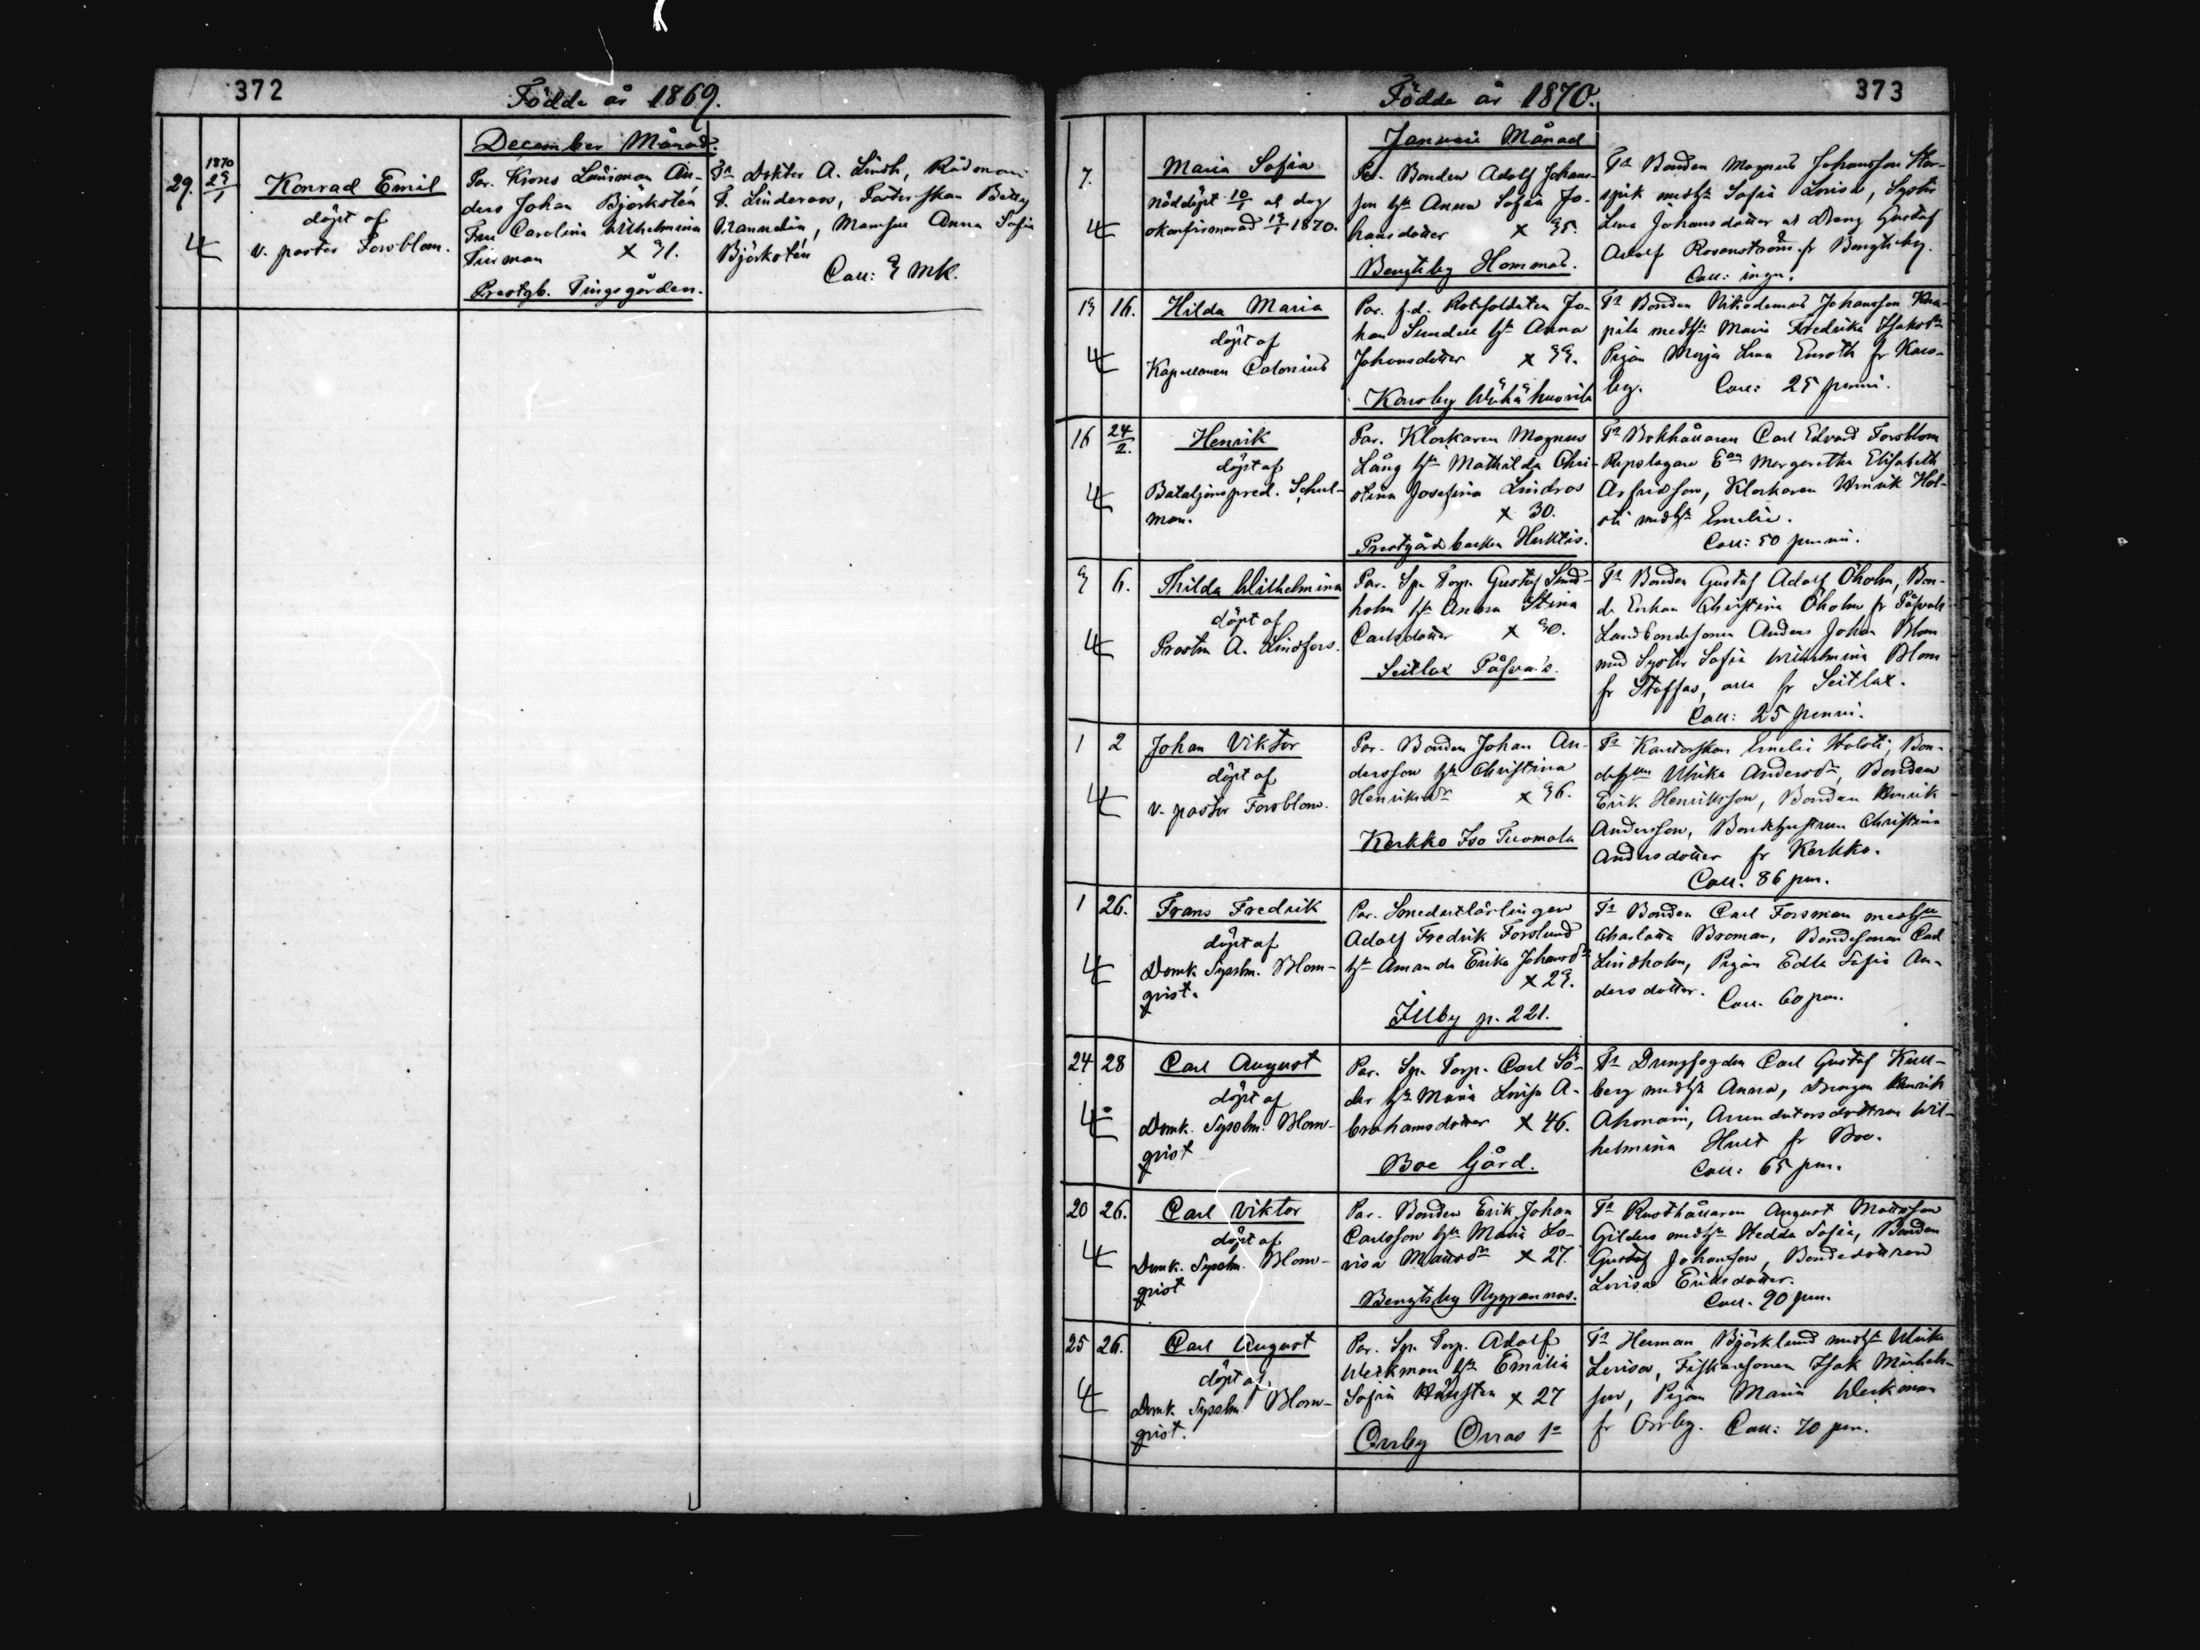 372
Födde år 1869.
December Månad.
29.
1870
23/1
Konrad Emil
döpt af
v. pastor Forsblom.
Par. Krono Länsman An-
ders Johan Björkstén
Fru Carolina Wilhelmina
x 31.
Prestgb. Tingsgården.
Tn Doktor A. Lindh, Rådman
F. Linderoos, Pastorskan Betty
Mannelin, Mamsell Anna Sofia
Björkstén
Coll: 3 mk.
373
Födde år 1870.
Januari Månad
7.
Maria Sofia
nöddöpt 10/1 af
o konfirmerad 1870.
Par. Bonden Adolf Johans-
son h. Anna Sofia Jo-
hansdotter x 35.
Bengtsby Hommas.
Tn Bonden Magnus Johansson
Sofia Lovisa, Syster
Lena Johansdotter o Dreng Gustaf
Adolf Rosenström fr Bengtsby.
Coll: ingen.
13 16.
Hilda Maria
döpt af
Kapellanen Calonius
Par. f.d. Rotesoldaten Jo-
han Sundell h. Anna
Johansdotter x 33.
Karsby
Tn Bonden Nikodemus Johansson
Maria Fredrika
Pigan Maja Lena Enroth fr Kars-
by. Coll: 25 penni.
16 24/2.
Henrik
döpt af
Bataljonspred. Schul-
man.
Par. Klockaren Magnus
Lång h. Mathilda Chri-
stina Josefina Lindros
x 30.
Prestgårdsbacken
Tn Bokhållaren Carl Edvard Forsblom
Repslagare Margaretha Elisabeth
Arfvidson, Klockaren Henrik Hol-
sti Emelie.
Coll: 50 penni.
3 6.
Thilda Wilhelmina
döpt af
Prosten A. Lindfors.
Par. Sp. Torp. Gustaf Lind-
holm h. Anna Stina
Carlsdotter x 30.
Seitlax Påfvals.
Tn Bonden Gustaf Adolf Öholm, Bon-
de Enkan Christina Öholm fr Påfvals
Landbondesonen Anders Johan Blom
med Syster Sofia Wilhelmina Blom
fr Staffas, alla fr Seitlax.
Coll: 25 penni.
1 2
Johan Viktor
döpt af
v. pastor Forsblom.
Par. Bonden Johan An-
dersson h. Christina
x 36.
Kerkko Iso Tuomola
Tn Kantorskan Emelie Holsti, Bon-
Ulrika Andersdr, Bonden
Erik Henriksson, Bonden Henrik
Andersson, Bondehustrun Christina
Andersdotter fr Kerkko.
Coll: 86 pen.
1 26.
Frans Fredrik
döpt af
Domk. Sysslm. Blom-
qvist.
Par. Smedslärlingen
Adolf Fredrik Forslund
h. Amanda Erika Johansdr
x 23.
Illby p. 221.
Tn Bonden Carl Forsman
Charlotta Broman, Bondesonen Carl
Lindholm, Pigan Edla Sofia An-
dersdotter. Coll. 60 pen.
24 28
Carl August
döpt af
Domk. Sysslm. Blom-
qvist
Par. Sp. Torp. Carl Sö-
der h. Maria Lovisa A-
brahamsdotter x 46.
Boe Gård.
Tn Drengfogden Carl Gustaf Kull-
berg Anna, Drengen Henrik
Ahonain, Arrendatorsdottren Wil-
helmina Hult fr Boe.
Coll: 65 pen.
20 26.
Carl Viktor
döpt af
Domk. Sysslm. Blom-
qvist
Par. Bonden Erik Johan
Carlsson h. Maria Lo-
visa Mattsdr x 27.
Bengtsby Nygrannas.
Tn Rusthållaren August Mattsson
Gilders Hedda Sofia, Bonden
Gustaf Johansson, Bondedottren
Lovisa Eriksdotter.
Coll. 90 pen.
25 26.
Carl August
döpt af.
Domk. Sysslm. Blom-
qvist.
Par. Sp. Torp. Adolf
Weckman h. Emilia
Sofia x 27
Orrby Orras 1o
Tn Herman Björklund Ulrika
Lovisa, Fiskaresonen Isak Michels-
son, Pigan Maria Weckman
fr Orrby. Coll: 70 pen.